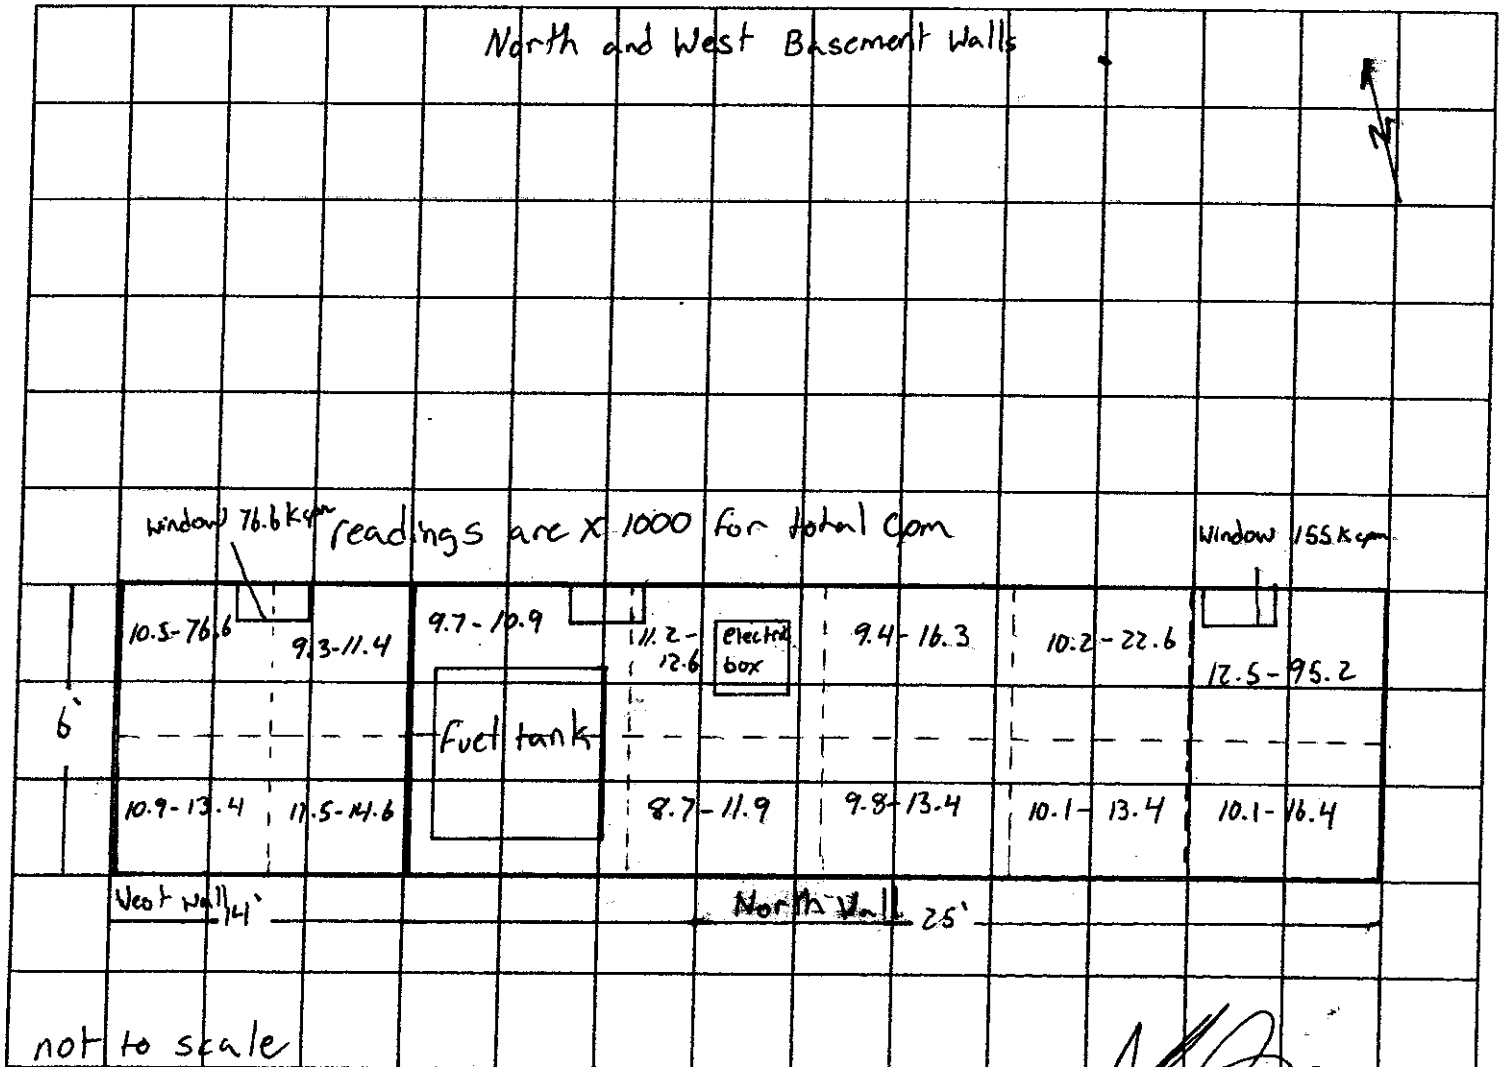 North and West Basement Walls
N
window 76.6 Kcpm
readings are X 1000 for total cpm
Window 155 Kcpm
10.5-76.6
9.3-11.4
9.7-10.9
11.2-
12.6
electric
box
9.4-16.3
10.2-22.6
12.5-95.2
6'
fuel tank
10.9-13.4
11.5-14.6
8.7-11.9
9.8-13.4
10.1-13.4
10.1-16.4
West Wall 14'
North Wall 25'
not to scale